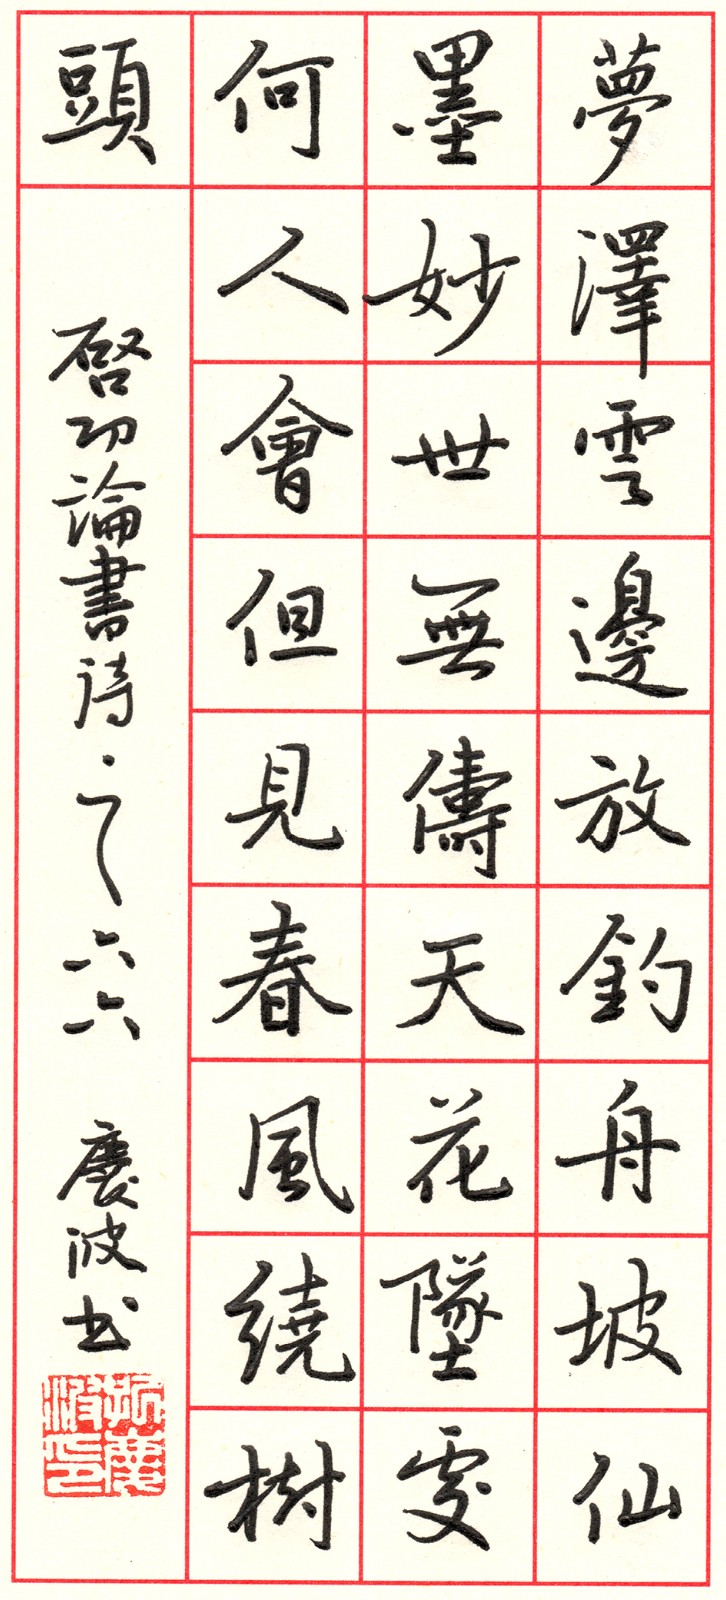 夢澤雲邊放釣舟坡仙
墨妙世無儔天花墜處
何人會但見春風繞樹
頭
啓功論書詩之一六六 慶波书